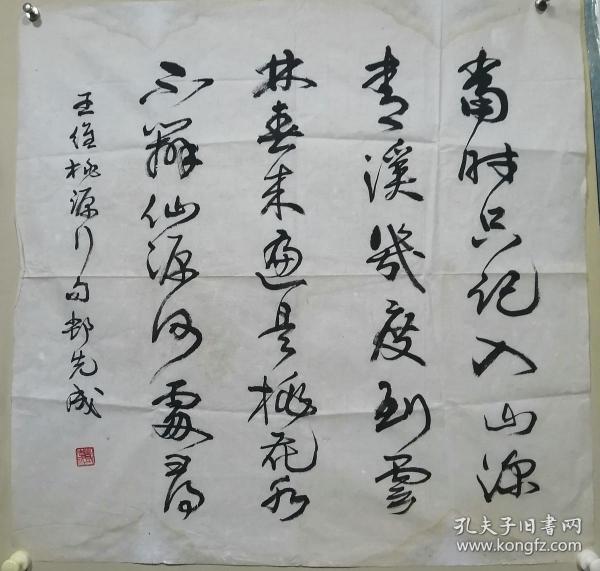 當時只記入山深
青溪幾度到雲
林春来遍是桃花水
不辨仙源何處尋
王維桃源行句郝先成
孔夫子旧書网
www.kongfz.com